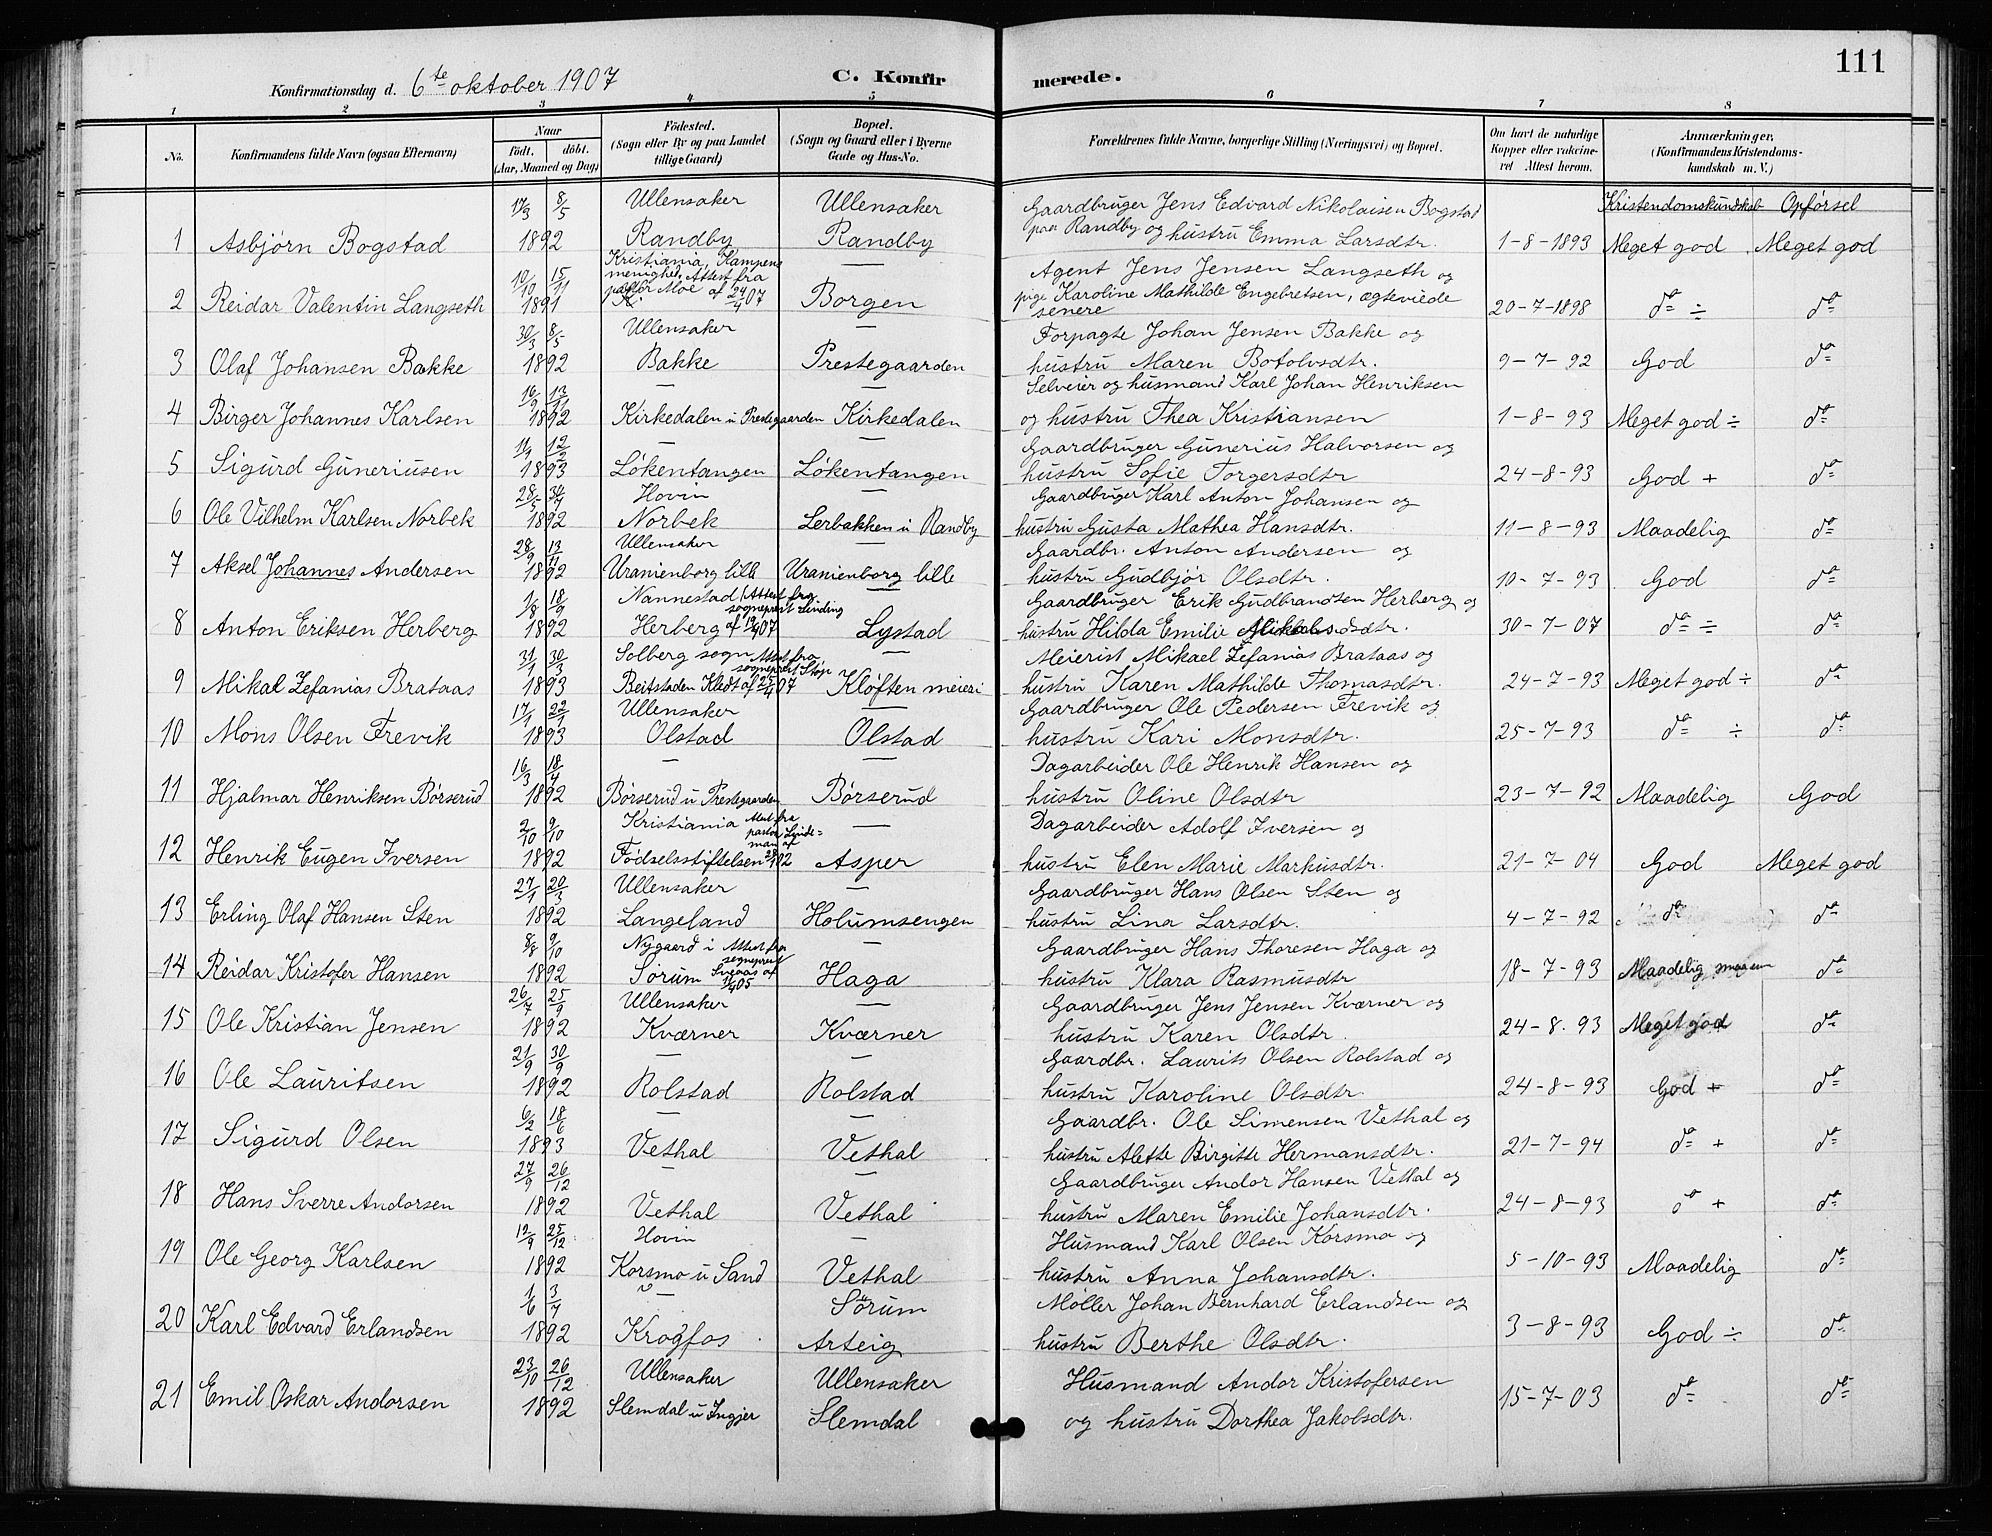 111
Konfirmationsdag d. 6te oktober 1907 C. Konfirmerede.
1 2 3 4 5 6 7 8
No. Konfirmandens fulde Navn (ogsaa Efternavn) Naar Födt. döbt. (Aar, Maaned og Dag) Födested. (Sogn eller By og paa Landet tillige Gaard) Bopæl. (Sogn og Gaard eller i Byerne Gade og Hus-No. Forældrenes fulde Navne, borgerlige Stilling (Næringsvei) og Bopæl. Om havt de naturlige Kopper eller vaccineret Attest herom. Anmærkninger, (Konfirmandens Kristendomskundskab m. V.)
Kristendomskundskab Opførsel
17/3 8/5 Ullensaker Ullensaker Gaardbruger Jens Edvard Nikolaisen Bogstad
1 Asbjørn Bogstad 1892 Randby Randby paa Randby og hustru Emma Larsdtr. 1-8-1893 Meget god Meget god
10/10 15/11 Kristiania, Kampens menighet, Attest fra — Agent Jens Jensen Langseth og
2 Reidar Valentin Langseth 1891 pastor Moe af 24/4 07 Borgen pige Karoline Mathilde Engebretsen, ægteviede senere 20-7-1898 do ÷ do
30/3 8/5 Ullensaker — Forpagte Johan Jensen Bakke og
3 Olaf Johansen Bakke 1892 Bakke Prestegaarden hustru Maren Botolvsdtr. 9-7-92 God do
16/9 13/11 — Selveier og husmand Karl Johan Henriksen
4 Birger Johannes Karlsen 1892 Kirkedalen u Prestegaarden Kirkedalen og hustru Thea Kristiansen 1-8-93 Meget god ÷ do
11/1 12/2 — — Gaardbruger Gunerius Halvorsen og
5 Sigurd Guneriusen 1893 Løkentangen Løkentangen hustru Sofie Torgersdtr 24-8-93 God + do
Hovin — Gaardbruger Karl Anton Johansen og
6 Ole Vilhelm Karlsen Norbek 1892 Norbek Lerbakken u Randby hustru Gusta Mathea Hansdtr. 11-8-93 Maadelig do
28/9 13/11 Ullensaker Gaardbr. Anton Andersen og
7 Aksel Johannes Andersen 1892 Uranienborg lille Uranienborg lille hustru Gudbjør Olsdtr. 10-7-93 God do
1/8 18/9 Nannestad (Attest fra sogneprest Linding — Gaardbruger Erik Gudbrandsen Herberg og
8 Anton Eriksen Herberg 1892 Herberg af 19/4 07 Lystad hustru Hilda Emilie 30-7-07 do ÷ do
31/1 30/3 Solberg sogn Attest fra sogneprest — Meierist Mikael Zefanias Brataas og
9 Mikal Zefanias Brataas 1893 Beitstaden Kløften meieri hustru Karen Mathilde Thomasdtr. 24-7-93 Meget god ÷ do
17/1 22/1 Ullensaker — Gaardbruger Ole Pedersen Frevik og
10 Mons Olsen Frevik 1893 Olstad Olstad hustru Kari Monsdtr. 25-7-93 do ÷ do
16/3 18/4 — — Dagarbeider Ole Henrik Hansen og
11 Hjalmar Henriksen Børserud 1892 Børserud u Prestegaarden Børserud hustru Oline Olsdtr 23-7-92 Maadelig God
2/10 9/10 Kristiania Attest fra pastor Lindeman af — Dagarbeider Adolf Iversen og
12 Henrik Eugen Iversen 1892 Fødselsstiftelsen Asper hustru Elen Marie Markusdtr. 21-7-04 God Meget god
27/1 20/3 Ullensaker — Gaardbruger Hans Olsen Sten og
13 Erling Olaf Hansen Sten 1892 Langeland Holumsengen hustru Lina Larsdtr. 4-7-92 do do
8/8 9/10 Nygaard i Attest fra sogneprest — Gaardbruger Hans Thoresen Haga og
14 Reidar Kristofer Hansen 1892 Sørum Sveaas af Haga hustru Klara Rasmusdtr 18-7-93 Maadelig do
26/7 25/9 Ullensaker — Gaardbruger Jens Jensen Kværner og
15 Ole Kristian Jensen 1892 Kværner Kværner hustru Karen Olsdtr 24-8.93 Meget god do
21/9 30/9 — — Gaardbr. Laurits Olsen Rolstad og
16 Ole Lauritsen 1892 Rolstad Rolstad hustru Karoline Olsdtr 24-8-93 God + do
6/2 18/6 — — Gaardbr. Ole Simensen Vethal og
17 Sigurd Olsen 1893 Vethal Vethal hustru Alette Birgitte Hermansdtr. 21-7-94 do + do
27/9 26/12 — — Gaardbruger Andor Hansen Vethal og
18 Hans Sverre Andorsen 1892 Vethal Vethal hustru Maren Emilie Johansdtr. 24-8-93 do + do
12/9 25/12 Hovin — Husmand Karl Olsen Korsmo og
19 Ole Georg Karlsen 1892 Korsmo u Sand Vethal hustru Anna Johansdtr. 5-10-93 Maadelig do
1/6 3/7 — Sørum Møller Johan Bernhard Erlandsen og
20 Karl Edvard Erlandsen 1892 Krogfos Arteig hustru Berthe Olsdtr. 3-8-93 God ÷ do
23/10 26/12 Ullensaker Ullensaker Husmand Andor Kristofersen
21 Emil Oskar Andorsen 1892 Slemdal u Ingjer Slemdal og hustru Dorthea Jakobsdtr. 15-7-03 do do